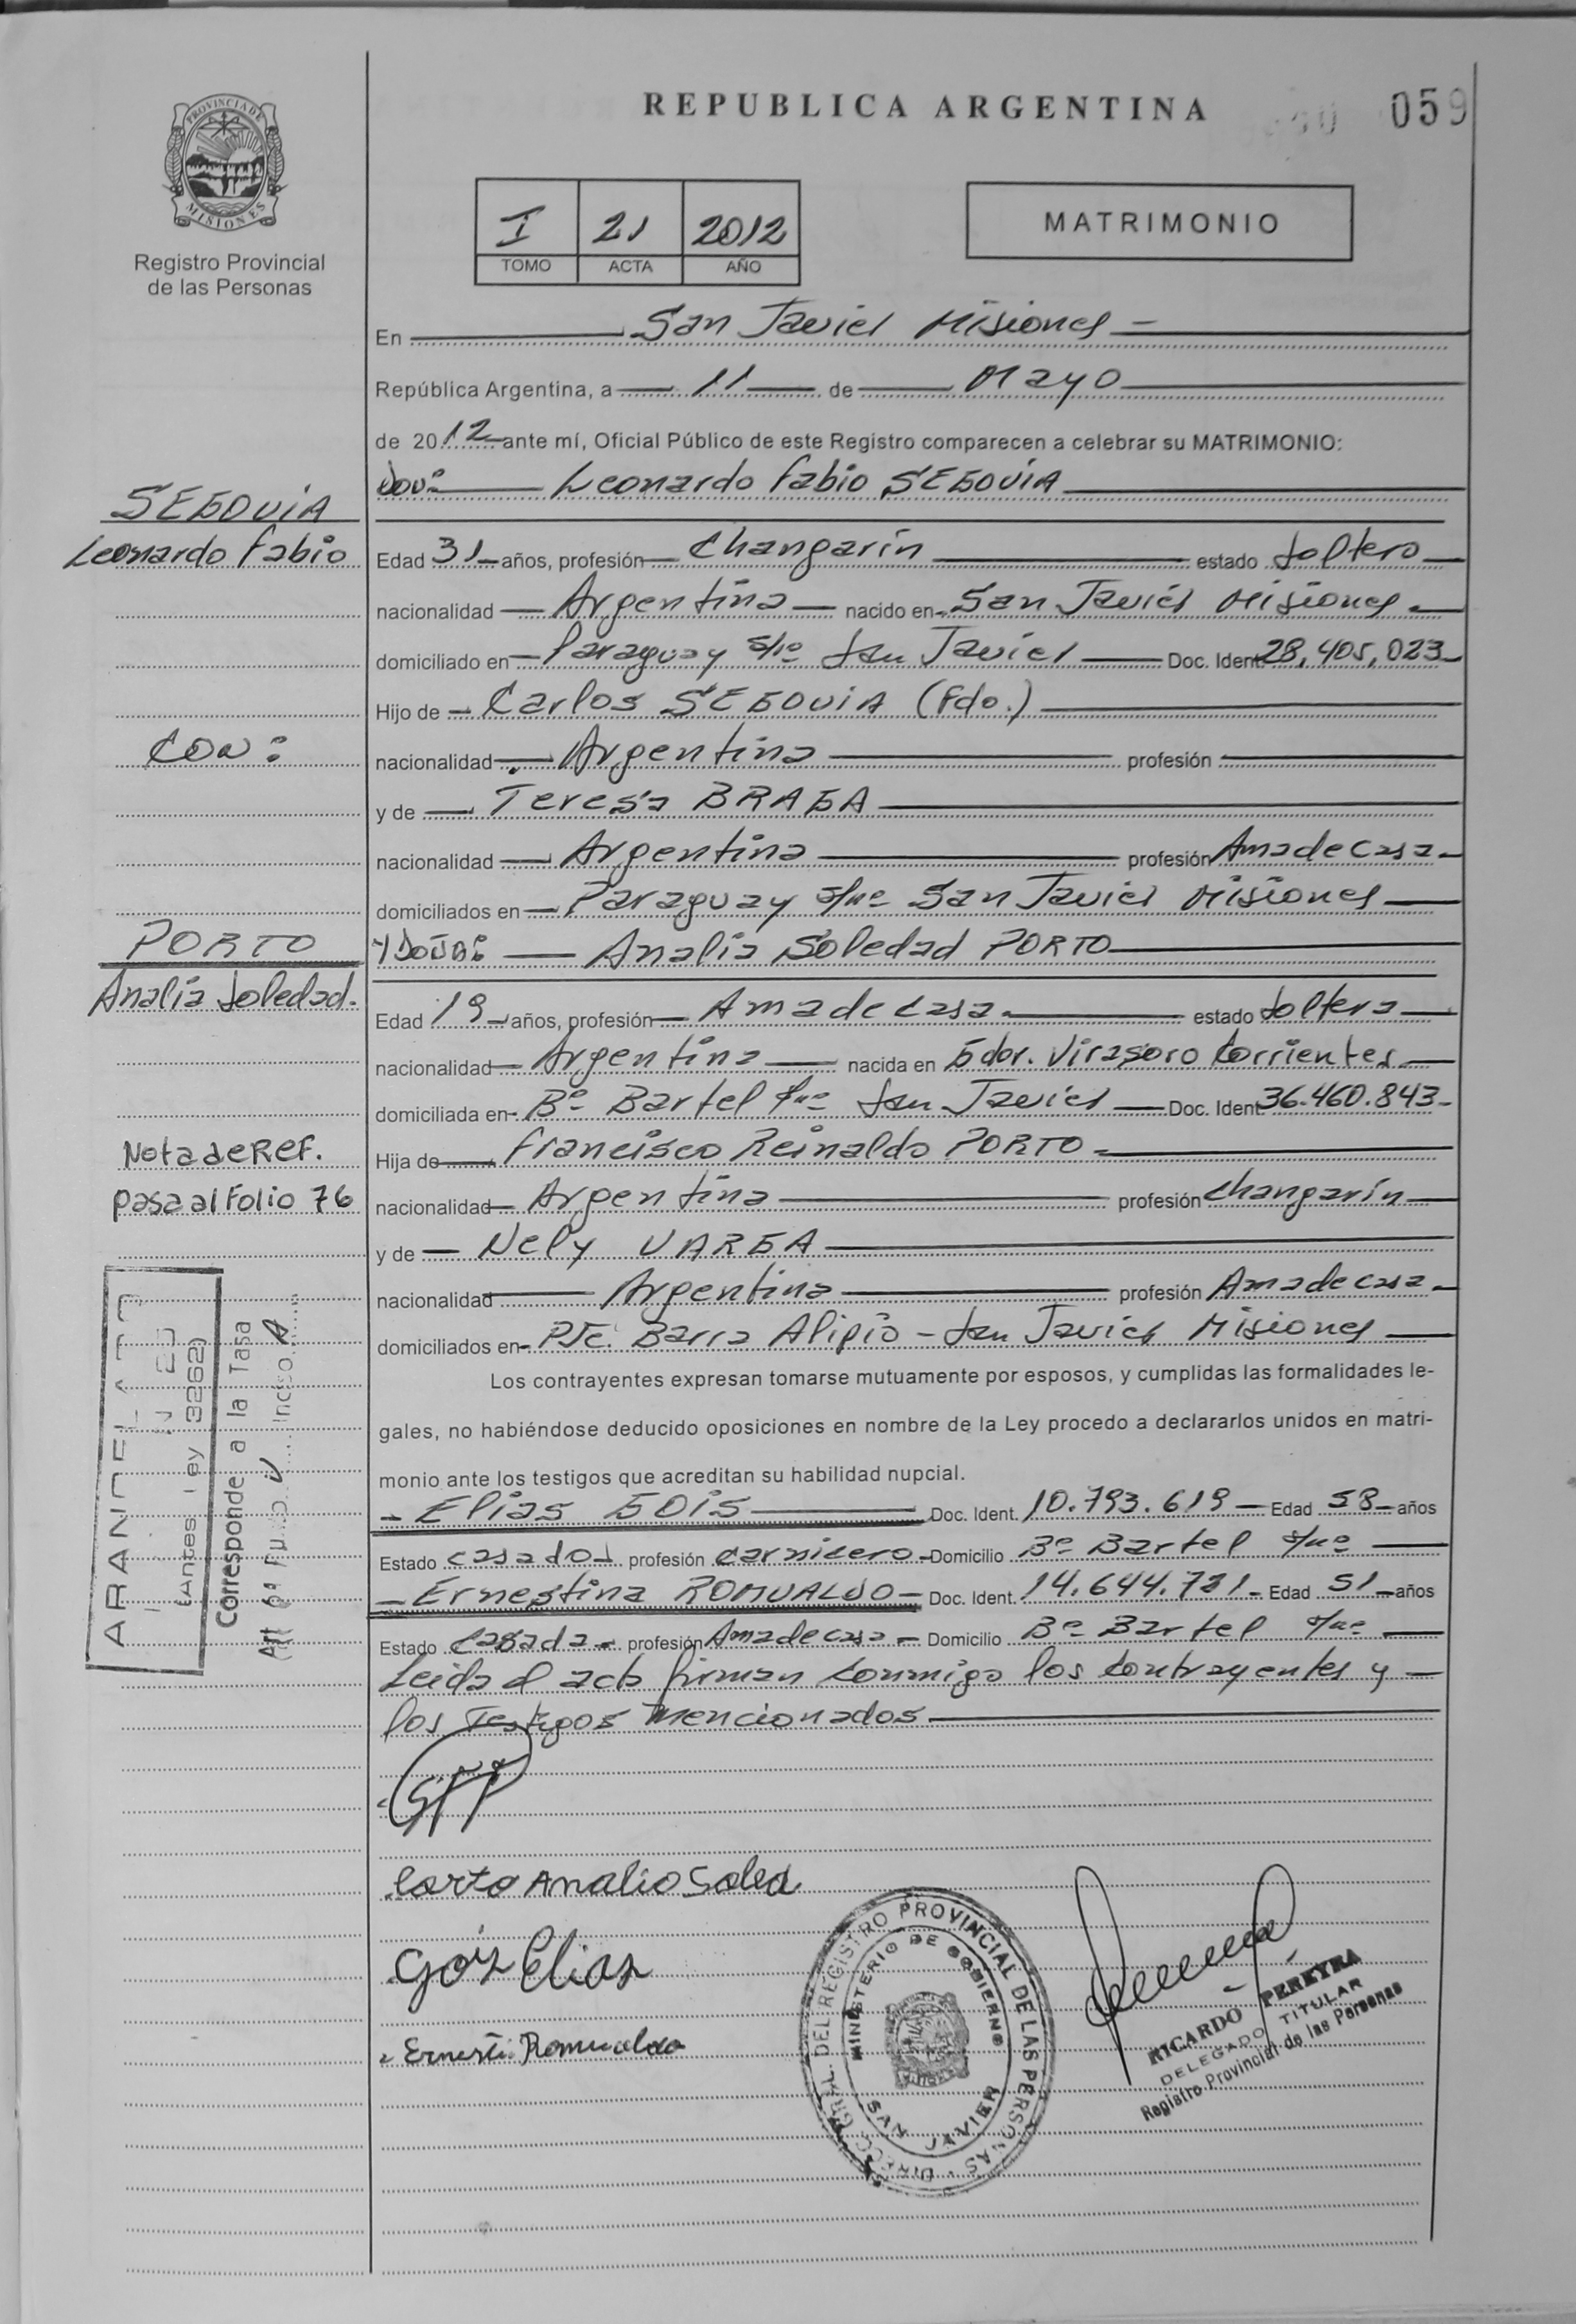 REPUBLICA ARGENTINA
059
PROVINCIA DE
MISIONES
Registro Provincial
de las Personas
I 21 2012
TOMO ACTA AÑO
MATRIMONIO
En San Javier Misiones
República Argentina, a 11 de Mayo
de 2012 ante mí, Oficial Público de este Registro comparecen a celebrar su MATRIMONIO:
Don: Leonardo Fabio SEGOVIA
Edad 31 años, profesión Changarín estado Soltero
nacionalidad Argentina nacido en San Javier Misiones
domiciliado en Paraguay s/nº San Javier Doc. Ident 28.405.023
Hijo de Carlos SEGOVIA (Fdo.)
nacionalidad Argentina profesión
y de Teresa BRAGA
nacionalidad Argentina profesión Ama de casa
domiciliados en Paraguay s/nº San Javier Misiones
Y DOÑA: Analía Soledad PORTO
Edad 19 años, profesión Ama de casa estado Soltera
nacionalidad Argentina nacida en Gdor. Virasoro Corrientes
domiciliada en Bº Bartel s/nº San Javier Doc. Ident 36.460.843
Hija de Francisco Reinaldo PORTO
nacionalidad Argentina profesión Changarín
y de Nely VARGA
nacionalidad Argentina profesión Ama de casa
domiciliados en Pje. Barra Alipio - San Javier Misiones
Los contrayentes expresan tomarse mutuamente por esposos, y cumplidas las formalidades le-
gales, no habiéndose deducido oposiciones en nombre de la Ley procedo a declararlos unidos en matri-
monio ante los testigos que acreditan su habilidad nupcial.
Elias GOIS Doc. Ident. 10.793.619 Edad 58 años
Estado casado profesión carnicero Domicilio Bº Bartel s/nº
Ernestina ROMUALDO Doc. Ident. 14.644.781 Edad 51 años
Estado Casada profesión Ama de casa Domicilio Bº Bartel s/nº
Leida el acta firman conmigo los contrayentes y
los Testigos mencionados
Porto Analia Soled
Gois Elias
Ernesti Romualdo
DIRECC. GRAL. DEL REGISTRO PROVINCIAL DE LAS PERSONAS
MINISTERIO DE GOBIERNO
SAN JAVIER
RICARDO PEREYRA
DELEGADO TITULAR
Registro Provincial de las Personas
SEGOVIA
Leonardo Fabio
CON:
PORTO
Analía Soledad
Nota de Ref.
pasa al Folio 76
(Antes Ley 3262)
Corresponde a la Tasa
Inciso A